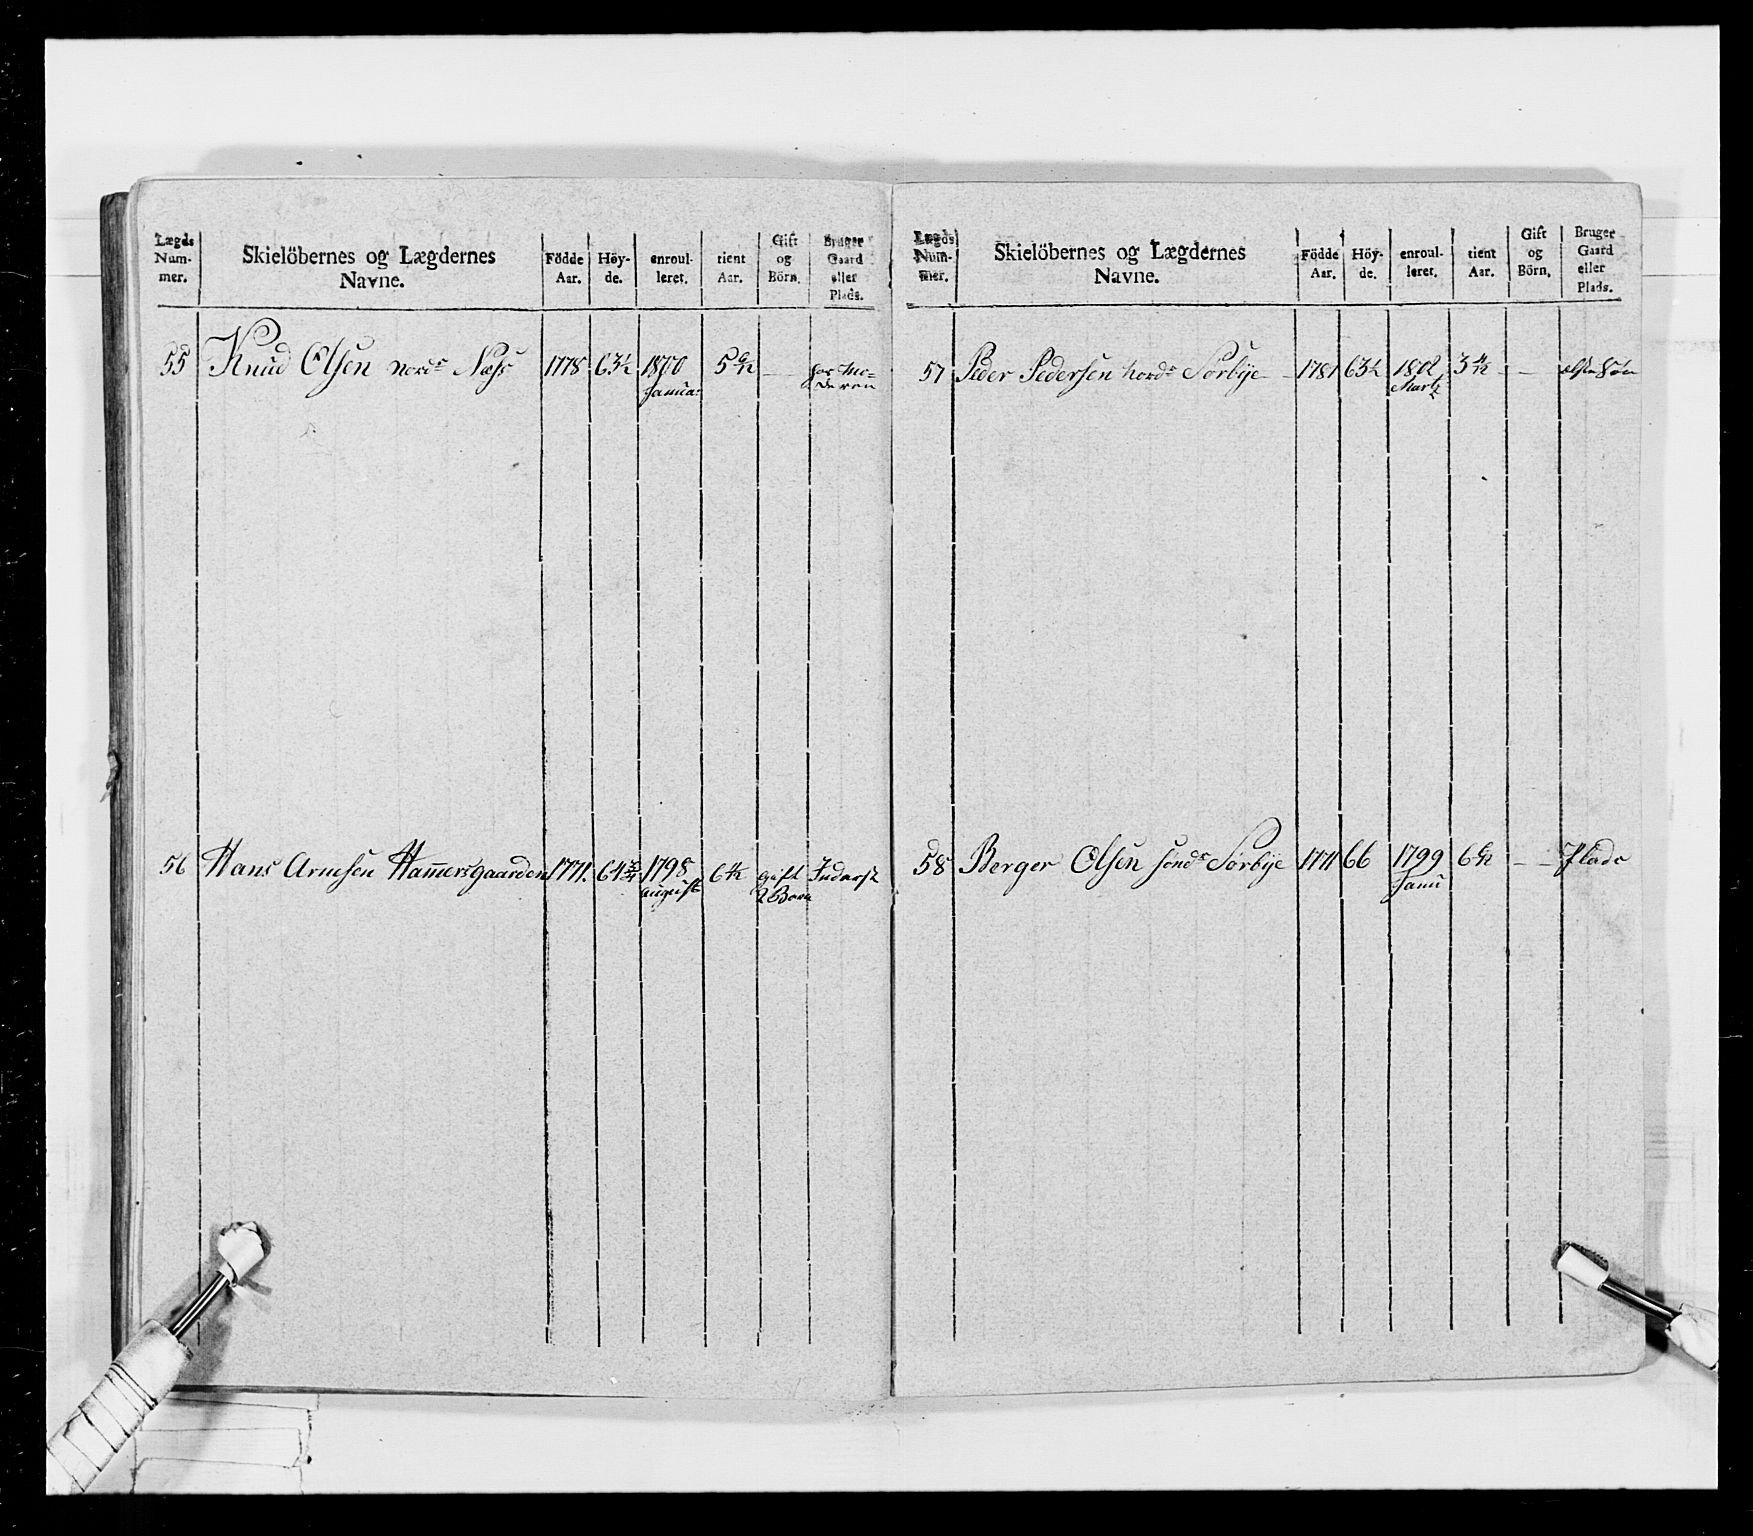 Lægds Num- mer. Skielöbernes og Lægdernes Navne. Födde Aar. Höy- de. enroul- leret. tient Aar. Gift og Börn. Bruger Gaard eller Plads.
55 Knud Olsen nordr Næss 1778 63½ 1800 5 — hos Mo-
Januar deren
56 Hans Arnesen Hammersgaarden 1771. 64¾ 1798 6 gift Inderst
august 2 Børn
Lægds Num- mer. Skielöbernes og Lægdernes Navne. Födde Aar. Höy- de. enroul- leret. tient Aar. Gift og Börn. Bruger Gaard eller Plads.
57 Peder Pedersen nordr Sørbÿe 1781 63½ 1802 3 —
Martz
58 Berger Olsen sondr Sørbÿe 1771 66 1799 6 — Plads
Janu